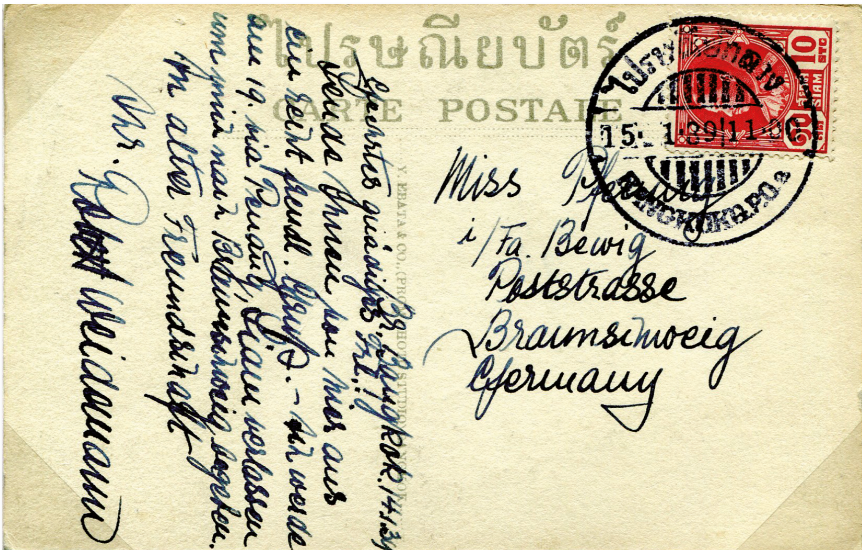 ไปรษณียบัตร์
CARTE POSTALE
10
STG
SIAM
15. 1.39 11-00
BANGKOK G.P.O. a
Miss
i/Fa. Bewig
Poststrasse
Braunschweig
Germany
Bangkok. 14.1.39
Geehrtes gnädiges Frl.!
Sende Ihnen von mir aus
ein recht freudl. Gruß. - Ich werde
am 19. via Penang, Siam verlassen
um mich nach Braunschweig begeben.
In alter Freundschaft
Ihr. Robert Weidemann
Y. EBATA & CO.,